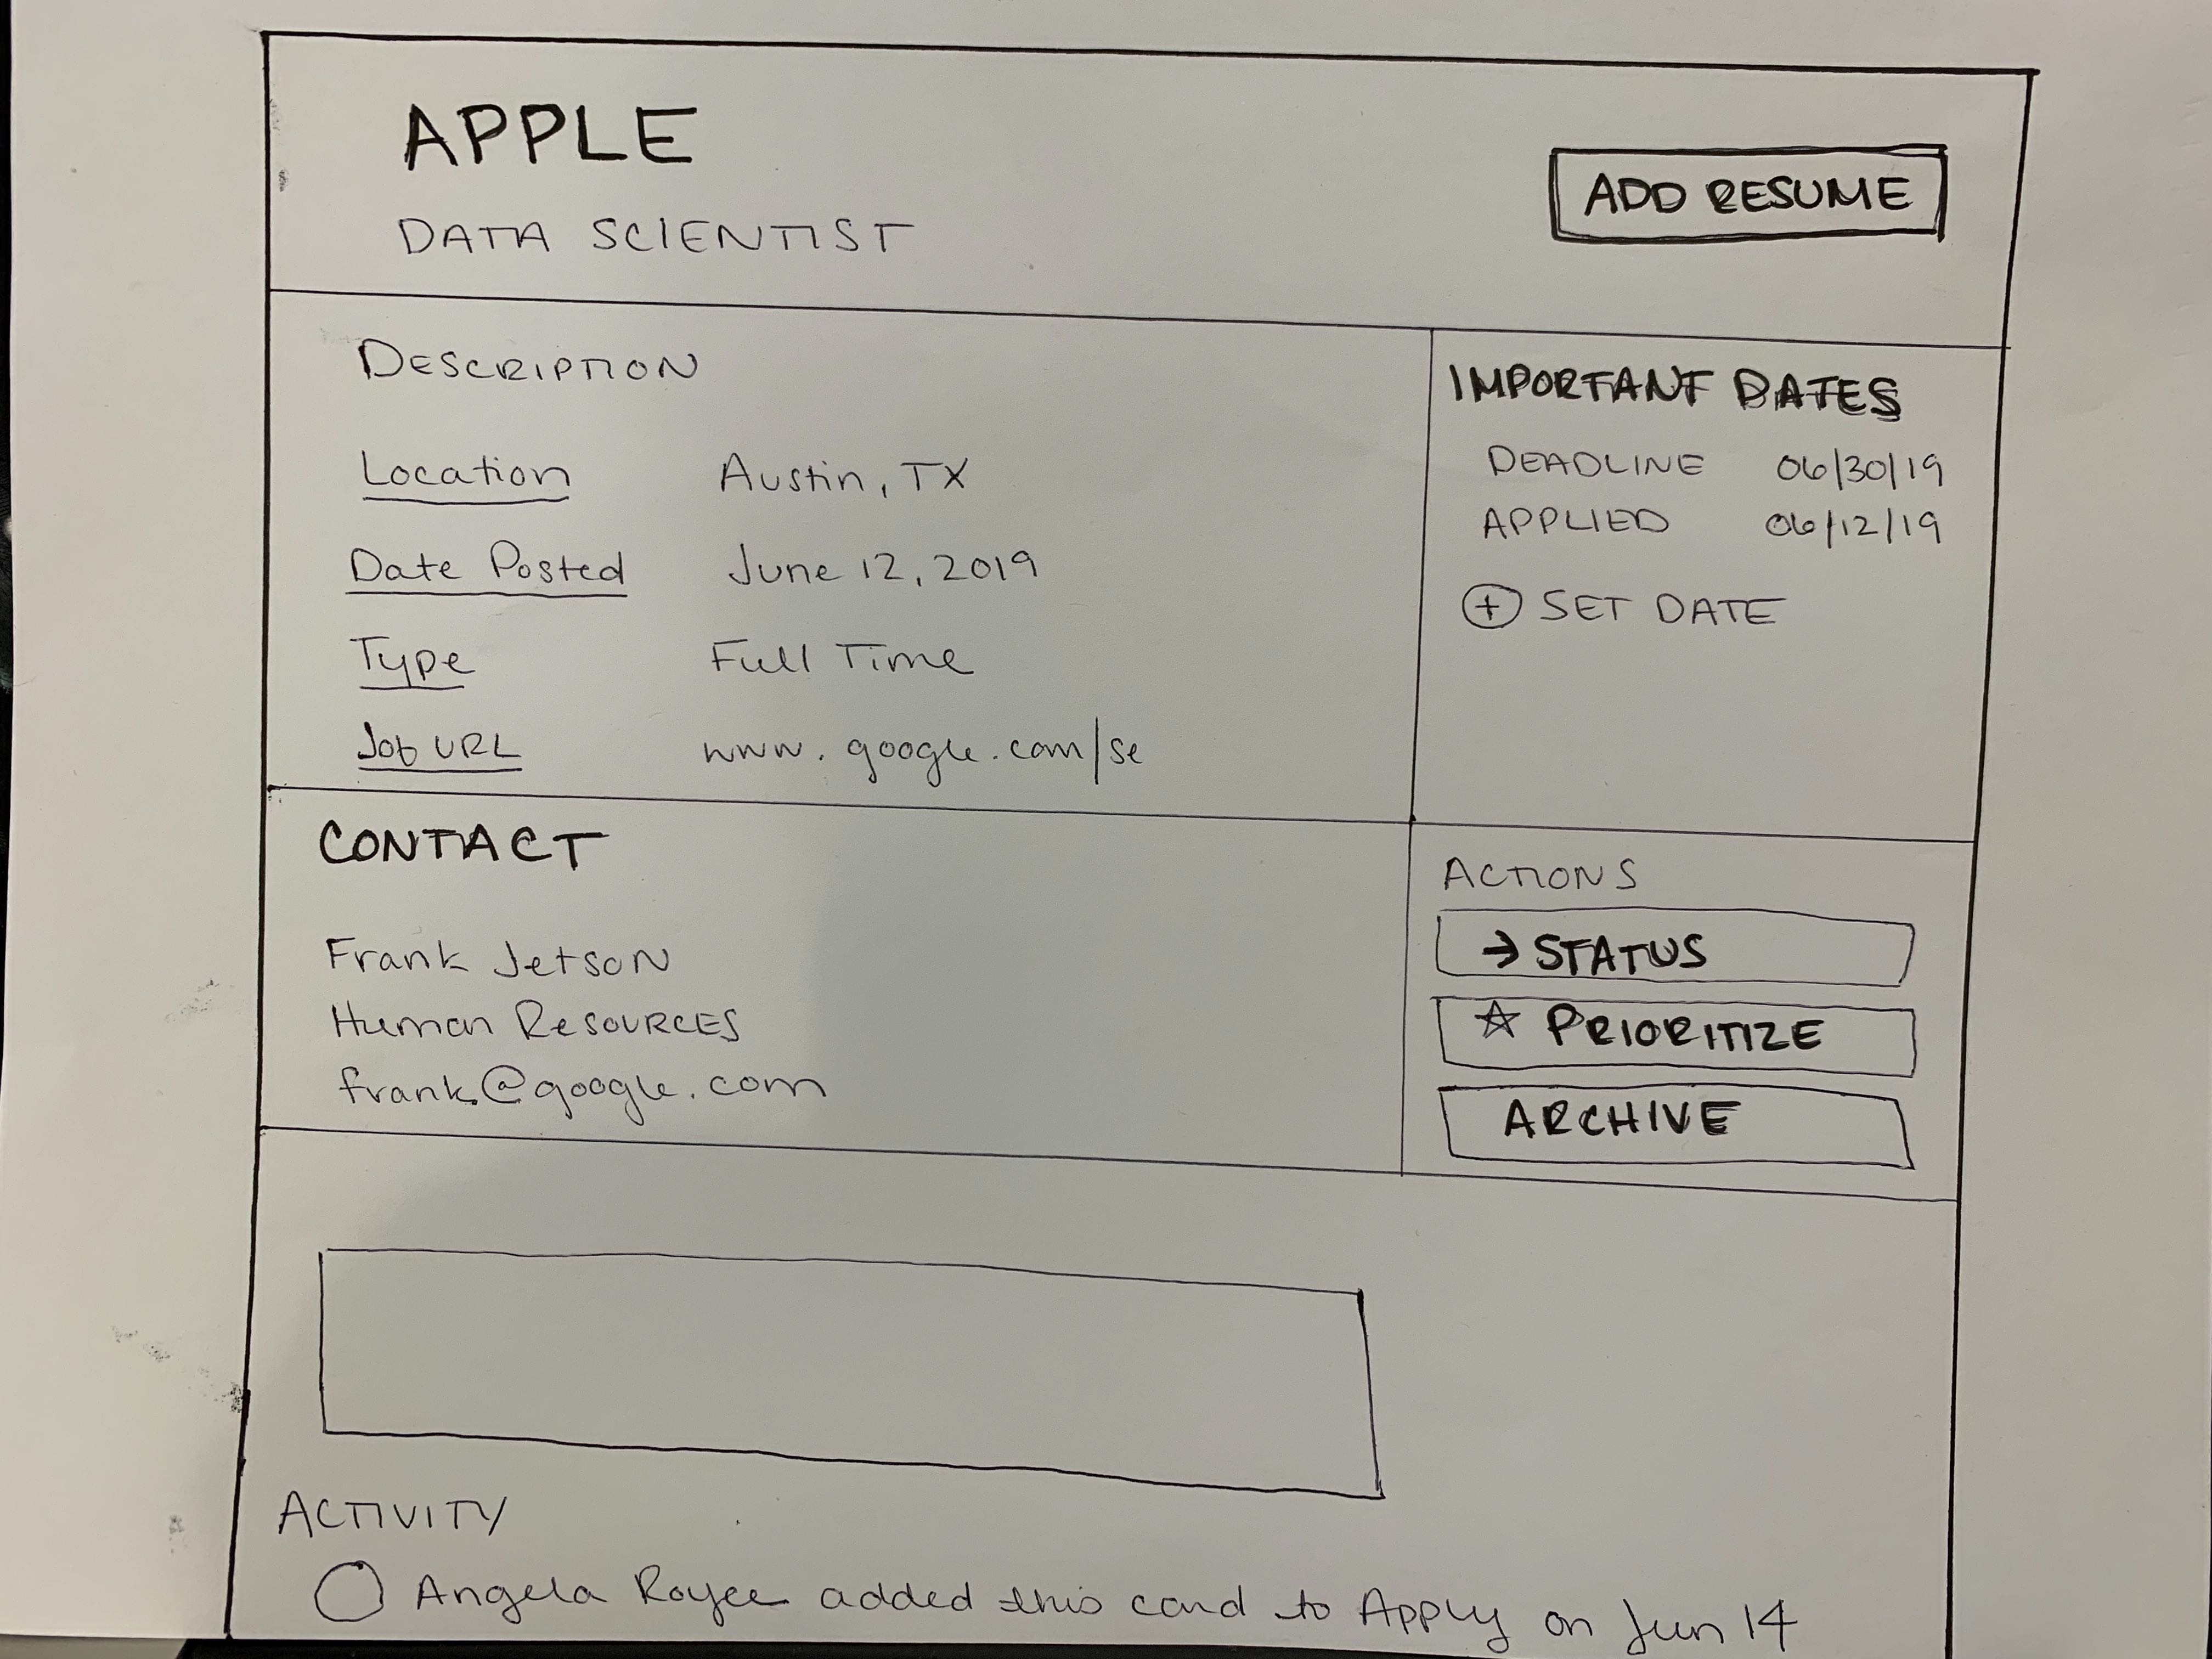 APPLE
DATA SCIENTIST
ADD RESUME
DESCRIPTION
Location Austin, TX
Date Posted June 12, 2019
Type Full Time
Job URL www.google.com/se
IMPORTANT DATES
DEADLINE 06/30/19
APPLIED 06/12/19
+ SET DATE
CONTACT
Frank Jetson
Human Resources
frank@google.com
ACTIONS
→ STATUS
☆ PRIORITIZE
ARCHIVE
ACTIVITY
Angela Royce added this card to Apply on Jun 14